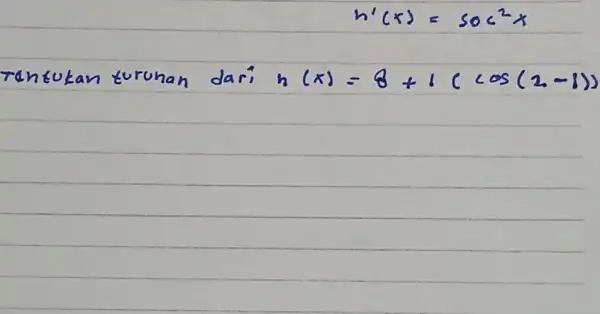 h'(x) = soc²x
Tentukan turunan dari h (x) = 8 + 1 ( cos (2 -1))